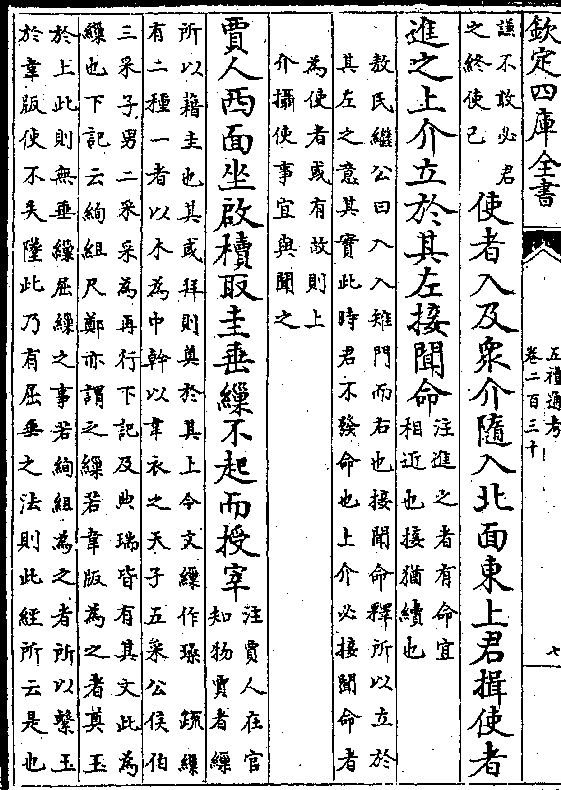 欽定四庫全書
五禮通考
卷二百三十
七
謙不敢必君
之終使己
使者入及衆介隨入北面東上君揖使者
進之上介立於其左接聞命
注進之者有命宜
相近也接猶續也
敖氏繼公曰入入雉門而右也接聞命釋所以立於
其左之意其實此時君不發命也上介必接聞命者
為使者或有故則上
介攝使事宜與聞之
賈人西面坐啟櫝取圭垂繅不起而授宰
注賈人在官
知物賈者繅
所以藉圭也其或拜則奠於其上今文繅作璪 疏繅
有二種一者以木為中幹以韋衣之天子五采公侯伯
三采子男二采采為再行下記及典瑞皆有其文此為
繅也下記云絢組尺鄭亦謂之繅若韋版為之者奠玉
於上此則無垂繅屈繅之事若絢組為之者所以繫玉
於韋版使不失墜此乃有屈垂之法則此經所云是也